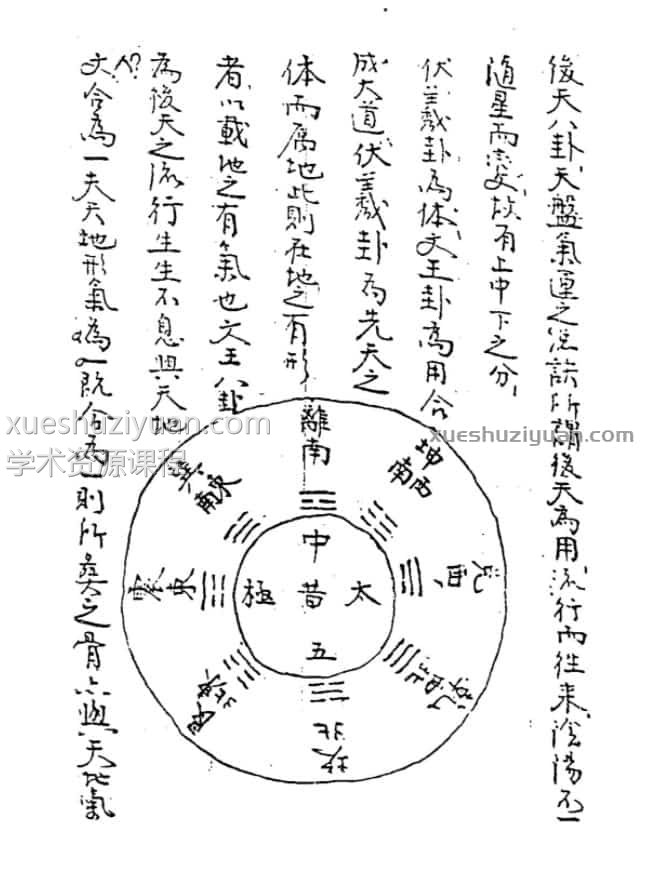 後天八卦天盤氣運之說訣所謂後天為用流行而往来陰陽不一
隨星而變故有上中下之分
伏羲卦為体文王卦為用合
成大道伏羲卦為先天之
体而属地此則在地之有形
者以載地之有氣也文王八卦
為後天之流行生生不息與天地
人?
文合為一夫天地形氣為一既合為一則所奠之骨亦與天地氣
離南
坤西南
兌西
乾西北
坎北
艮東北
震東
巽東南
中
太昔極
五
xueshuziyuan.com
学术资源课程
xueshuziyuan.com